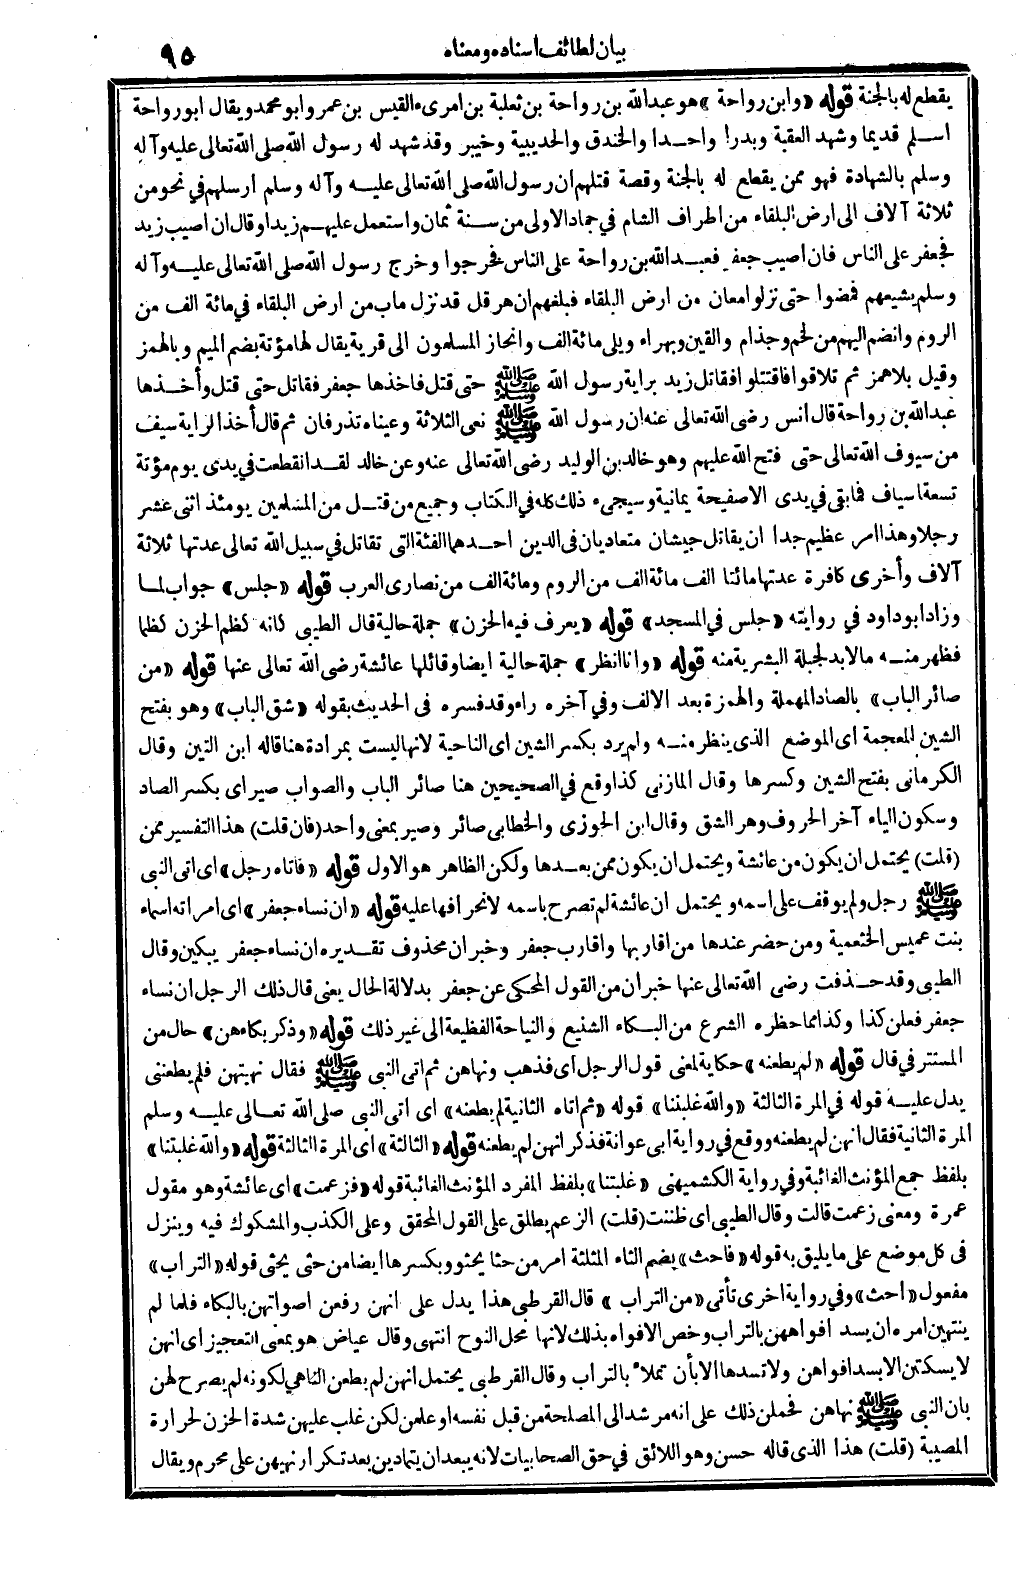 بيان لطائف اسناده ومعناه
٩٥
يقطع له بالجنة قوله «وابن رواحة» هو عبدالله بن رواحة بن ثعلبة بن امرىء القيس بن عمر وابو محمد ويقال ابو رواحة
اسلم قديما وشهد العقبة وبدرا واحدا والخندق والحديبية وخيبر وقد شهد له رسول الله صلى الله تعالى عليه وآله
وسلم بالشهادة فهو ممن يقطع له بالجنة وقصة قتلهم ان رسول الله صلى الله تعالى عليه وآله وسلم ارسلهم في نحو من
ثلاثة آلاف الى ارض البلقاء من اطراف الشام في جماد الاولى من سنة ثمان واستعمل عليهم زيدا وقال ان اصيب زيد
فجعفر على الناس فان اصيب جعفر فعبدالله بن رواحة على الناس فخرجوا وخرج رسول الله صلى الله تعالى عليه وآله
وسلم يشيعهم فمضوا حتى نزلوا معان من ارض البلقاء فبلغهم ان هرقل قد نزل ماب من ارض البلقاء في مائة الف من
الروم وانضم اليهم من لخم وجذام والقين وبهراء وبلى مائة الف وانحاز المسلمون الى قرية يقال لها مؤتة بضم الميم وبالهمز
وقيل بلا همز ثم تلاقوا فاقتتلوا فقاتل زيد براية رسول الله ﷺ حتى قتل فاخذها جعفر فقاتل حتى قتل وأخذها
عبدالله بن رواحة قال انس رضى الله تعالى عنه ان رسول الله ﷺ نعى الثلاثة وعيناه تذرفان ثم قال أخذ الراية سيف
من سيوف الله تعالى حتى فتح الله عليهم وهو خالد بن الوليد رضى الله تعالى عنه وعن خالد لقد انقطعت في يدى يوم مؤتة
تسعة اسياف فما بقى في يدى الا صفيحة يمانية وسيجىء ذلك كله في الكتاب وجميع من قتل من المسلمين يومئذ اثنى عشر
رجلا وهذا امر عظيم جدا ان يقاتل جيشان متعاديان فى الدين احدهما الفئة التى تقاتل في سبيل الله تعالى عدتها ثلاثة
آلاف وأخرى كافرة عدتها مائتا الف مائة الف من الروم ومائة الف من نصارى العرب قوله «جلس» جواب لما
وزاد ابو داود في روايته «جلس في المسجد» قوله «يعرف فيه الحزن» جملة حالية قال الطيبى كانه كظم الحزن كظما
فظهر منه مالا بد لجبلة البشرية منه قوله «وانا انظر» جملة حالية ايضا وقائلها عائشة رضى الله تعالى عنها قوله «من
صائر الباب» بالصاد المهملة والهمزة بعد الالف وفي آخره راء وقد فسره فى الحديث بقوله «شق الباب» وهو بفتح
الشين المعجمة اى الموضع الذى ينظر منه ولم يرد بكسر الشين اى الناحية لانها ليست بمرادة هنا قاله ابن التين وقال
الكرمانى بفتح الشين وكسرها وقال المازنى كذا وقع في الصحيحين هنا صائر الباب والصواب صير اى بكسر الصاد
وسكون الياء آخر الحروف وهر الشق وقال ابن الجوزى والخطابى صائر وصير بمعنى واحد (فان قلت) هذا التفسير ممن
(قلت) يحتمل ان يكون من عائشة ويحتمل ان يكون ممن بعدها ولكن الظاهر هو الاول قوله «فاتاه رجل» اى اتى النبى
ﷺ رجل ولم يوقف على اسمه ويحتمل ان عائشة لم تصرح باسمه لانحرافها عليه قوله «ان نساء جعفر» اى امراته اسماء
بنت عميس الخثعمية ومن حضر عندها من اقاربها واقارب جعفر وخبر ان محذوف تقديره ان نساء جعفر يبكين وقال
الطيبى وقد حذفت رضى الله تعالى عنها خبر ان من القول المحكى عن جعفر بدلالة الحال يعنى قال ذلك الرجل ان نساء
جعفر فعلن كذا وكذا مما حظره الشرع من البكاء الشنيع والنياحة الفظيعة الى غير ذلك قوله «وذكر بكاءهن» حال من
المستتر في قال قوله «لم يطعنه» حكاية لمعنى قول الرجل اى فذهب ونهاهن ثم اتى النبى ﷺ فقال نهيتهن فلم يطعننى
يدل عليه قوله في المرة الثالثة «والله غلبننا» قوله «ثم اتاه الثانية لم يطعنه» اى اتى النبى صلى الله تعالى عليه وسلم
المرة الثانية فقال انهن لم يطعنه ووقع في رواية ابى عوانة فذكر انهن لم يطعنه قوله «الثالثة» اى المرة الثالثة قوله «والله غلبتنا»
بلفظ جمع المؤنث الغائبة وفي رواية الكشميهنى «غلبتنا» بلفظ المفرد المؤنث الغائبة قوله «فزعمت» اى عائشة وهو مقول
عمرة ومعنى زعمت قالت وقال الطيبى اى ظننت (قلت) الزعم يطلق على القول المحقق وعلى الكذب والمشكوك فيه وينزل
فى كل موضع على ما يليق به قوله «فاحث» بضم الثاء المثلثة امر من حثا يحثو وبكسرها ايضا من حثى يحثى قوله «التراب»
مفعول «احث» وفي رواية اخرى تأتى «من التراب» قال القرطبى هذا يدل على انهن رفعن اصواتهن بالبكاء فلما لم
ينتهين امره ان يسد افواههن بالتراب وخص الافواه بذلك لانها محل النوح انتهى وقال عياض هو بمعنى التعجيز اى انهن
لا يسكتن الا بسد افواهن ولا تسدها الا بأن تملأ بالتراب وقال القرطبى يحتمل انهن لم يطعن الناهى لكونه لم يصرح لهن
بان النبى ﷺ نهاهن فحملن ذلك على انه مرشد الى المصلحة من قبل نفسه او علمن لكن غلب عليهن شدة الحزن لحرارة
المصيبة (قلت) هذا الذى قاله حسن وهو اللائق في حق الصحابيات لانه يبعد ان يتمادين بعد تكرار نهيهن على محرم ويقال